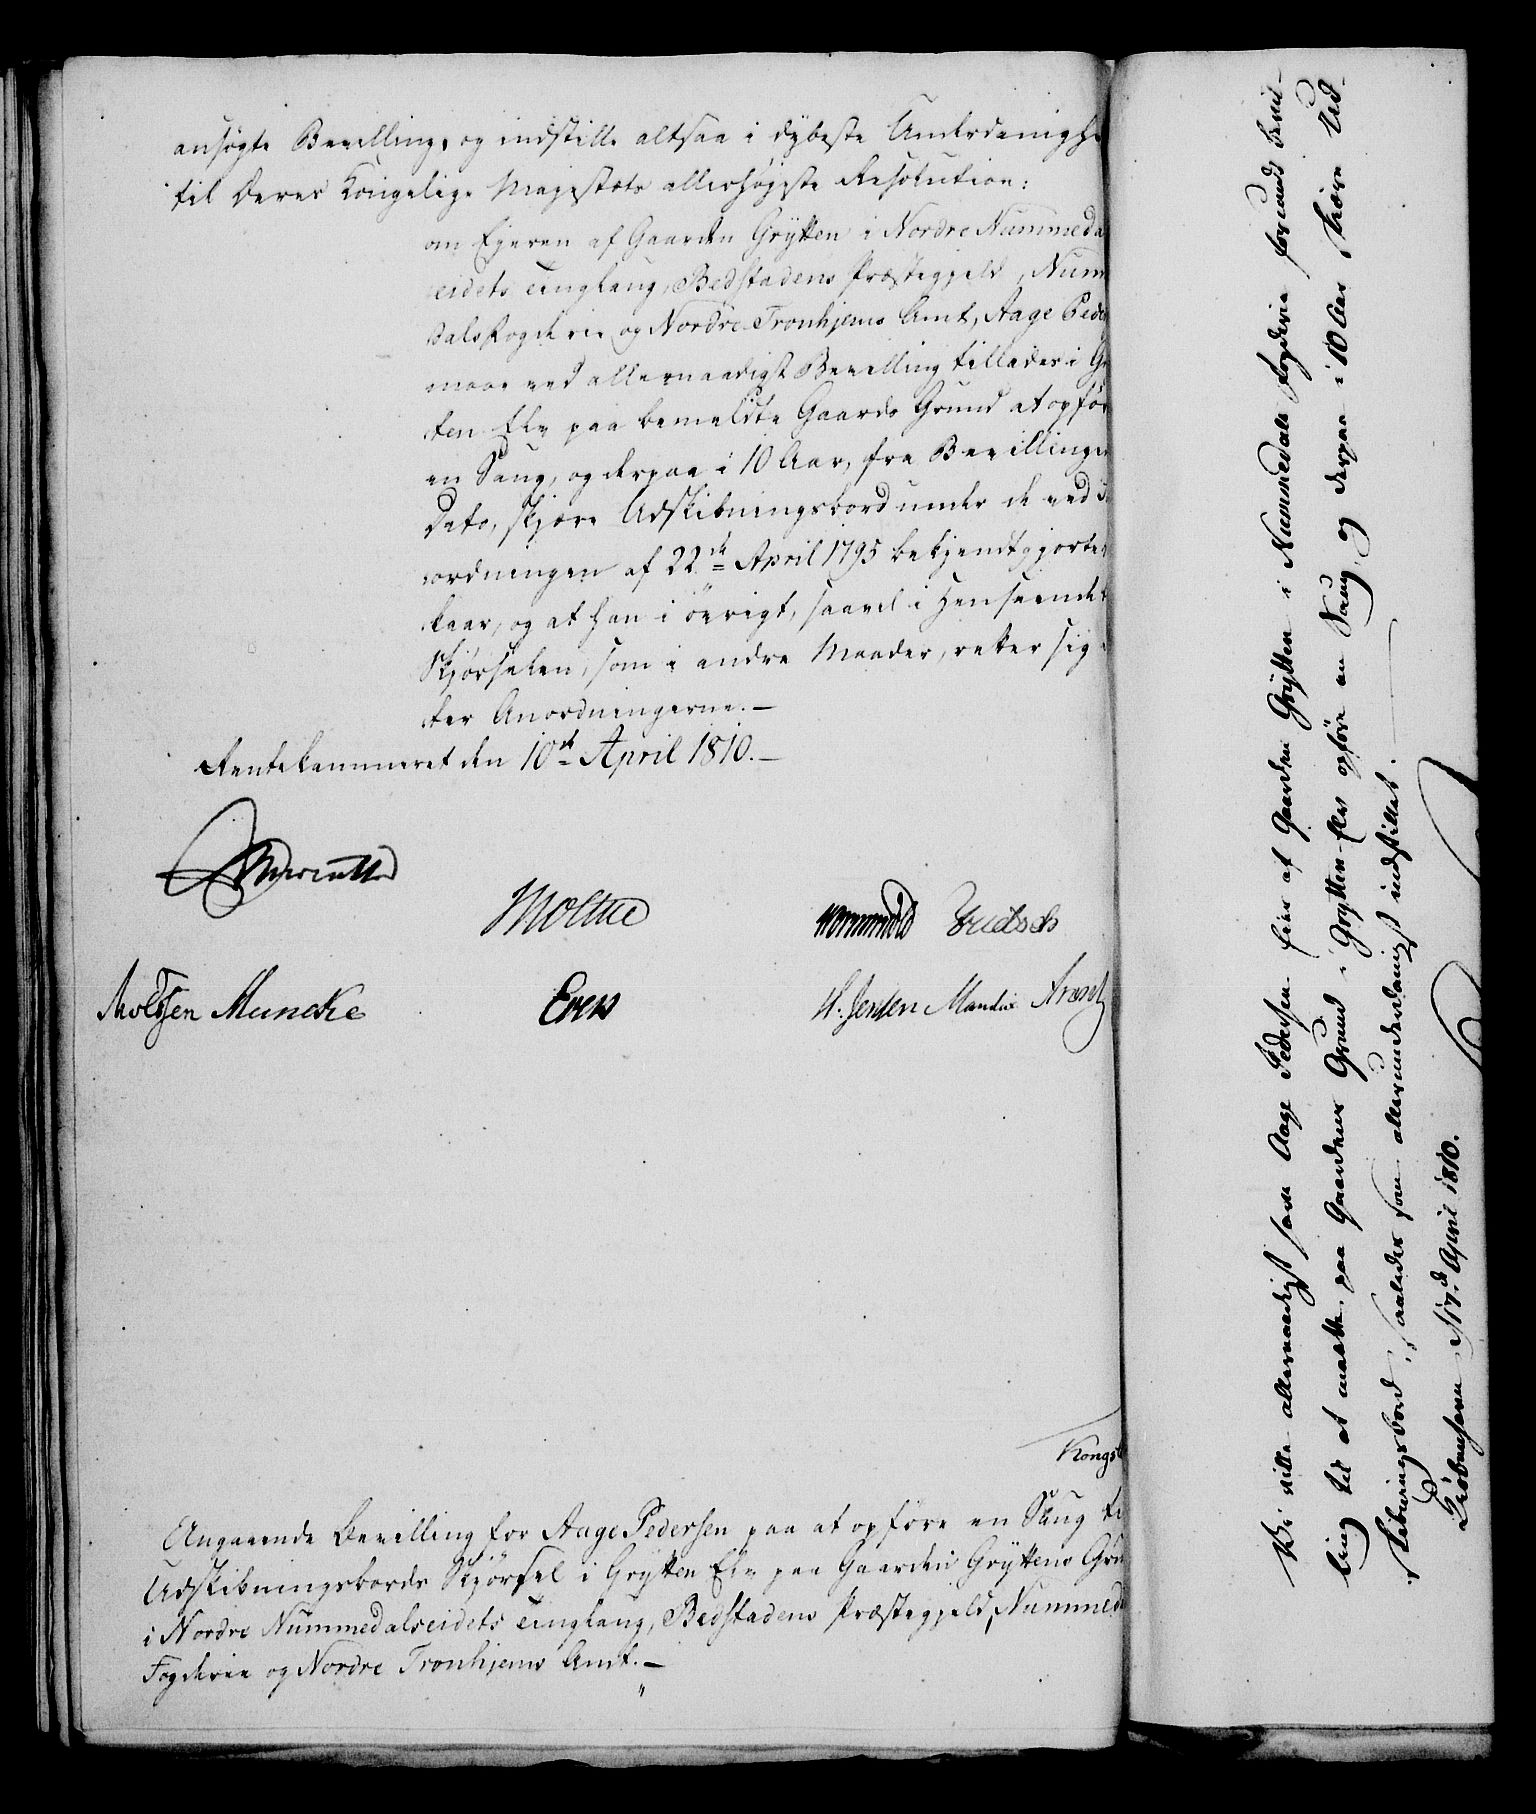 ansøgte Bevilling, og indstille altsaa i dybeste Underdanighe
til Deres Kongelige Majestæts allerhøjeste Resolution:
om Ejeren af Gaarden Grytten i Nordre Nummeda
eidets Tinglaug, Bedstadens Præstegjeld, Num
dals Fogderie og Nordre Tronhjems Amt, Aage Peder
maae ved allernaadigst Bevilling tillades i Gr
ten Elv paa bemeldte Gaards Grund at opfør
en Saug, og derpaa i 10 Aar, fra Bevillingen
Dato, skjære Udskibningsbord under de ved F
ordningen af 22de April 1795 bekjendtgjorte
kaar, og at han i øvrigt, saavel i Henseende t
Skjørselen, som i andre Maader, retter sig e
ter Anordningerne.—
Rentekammeret den 10de April 1810.—
Moltke
Wormskiold
Knoldsen Muncke Evers H. Jensen Mandix Arentz
Kongs
Angaaende Bevilling for Aage Pedersen paa at opføre en Saug ti
Udskibningsbords Skjørsel i Grytten Elv paa Gaarden Gryttens Grun
i Nordre Nummedalseidets Tinglaug, Bedstadens Præstegjeld, Nummeda
Fogderie og Nordre Tronhjems Amt.—
Vi ville allernaadigst have Aage Pedersen Eier af Gaarden Grytten i Nummedals Fogderie forundt Bevil-
ling til at maatte paa Gaardens Grund i Grytten-Elv opføre en Saug, og derpaa i 10 Aar skjære Ud-
skibningsbord, saaledes som allerunderdanigst indstillet.
Kiøbenhavn d. 17d. April 1810.